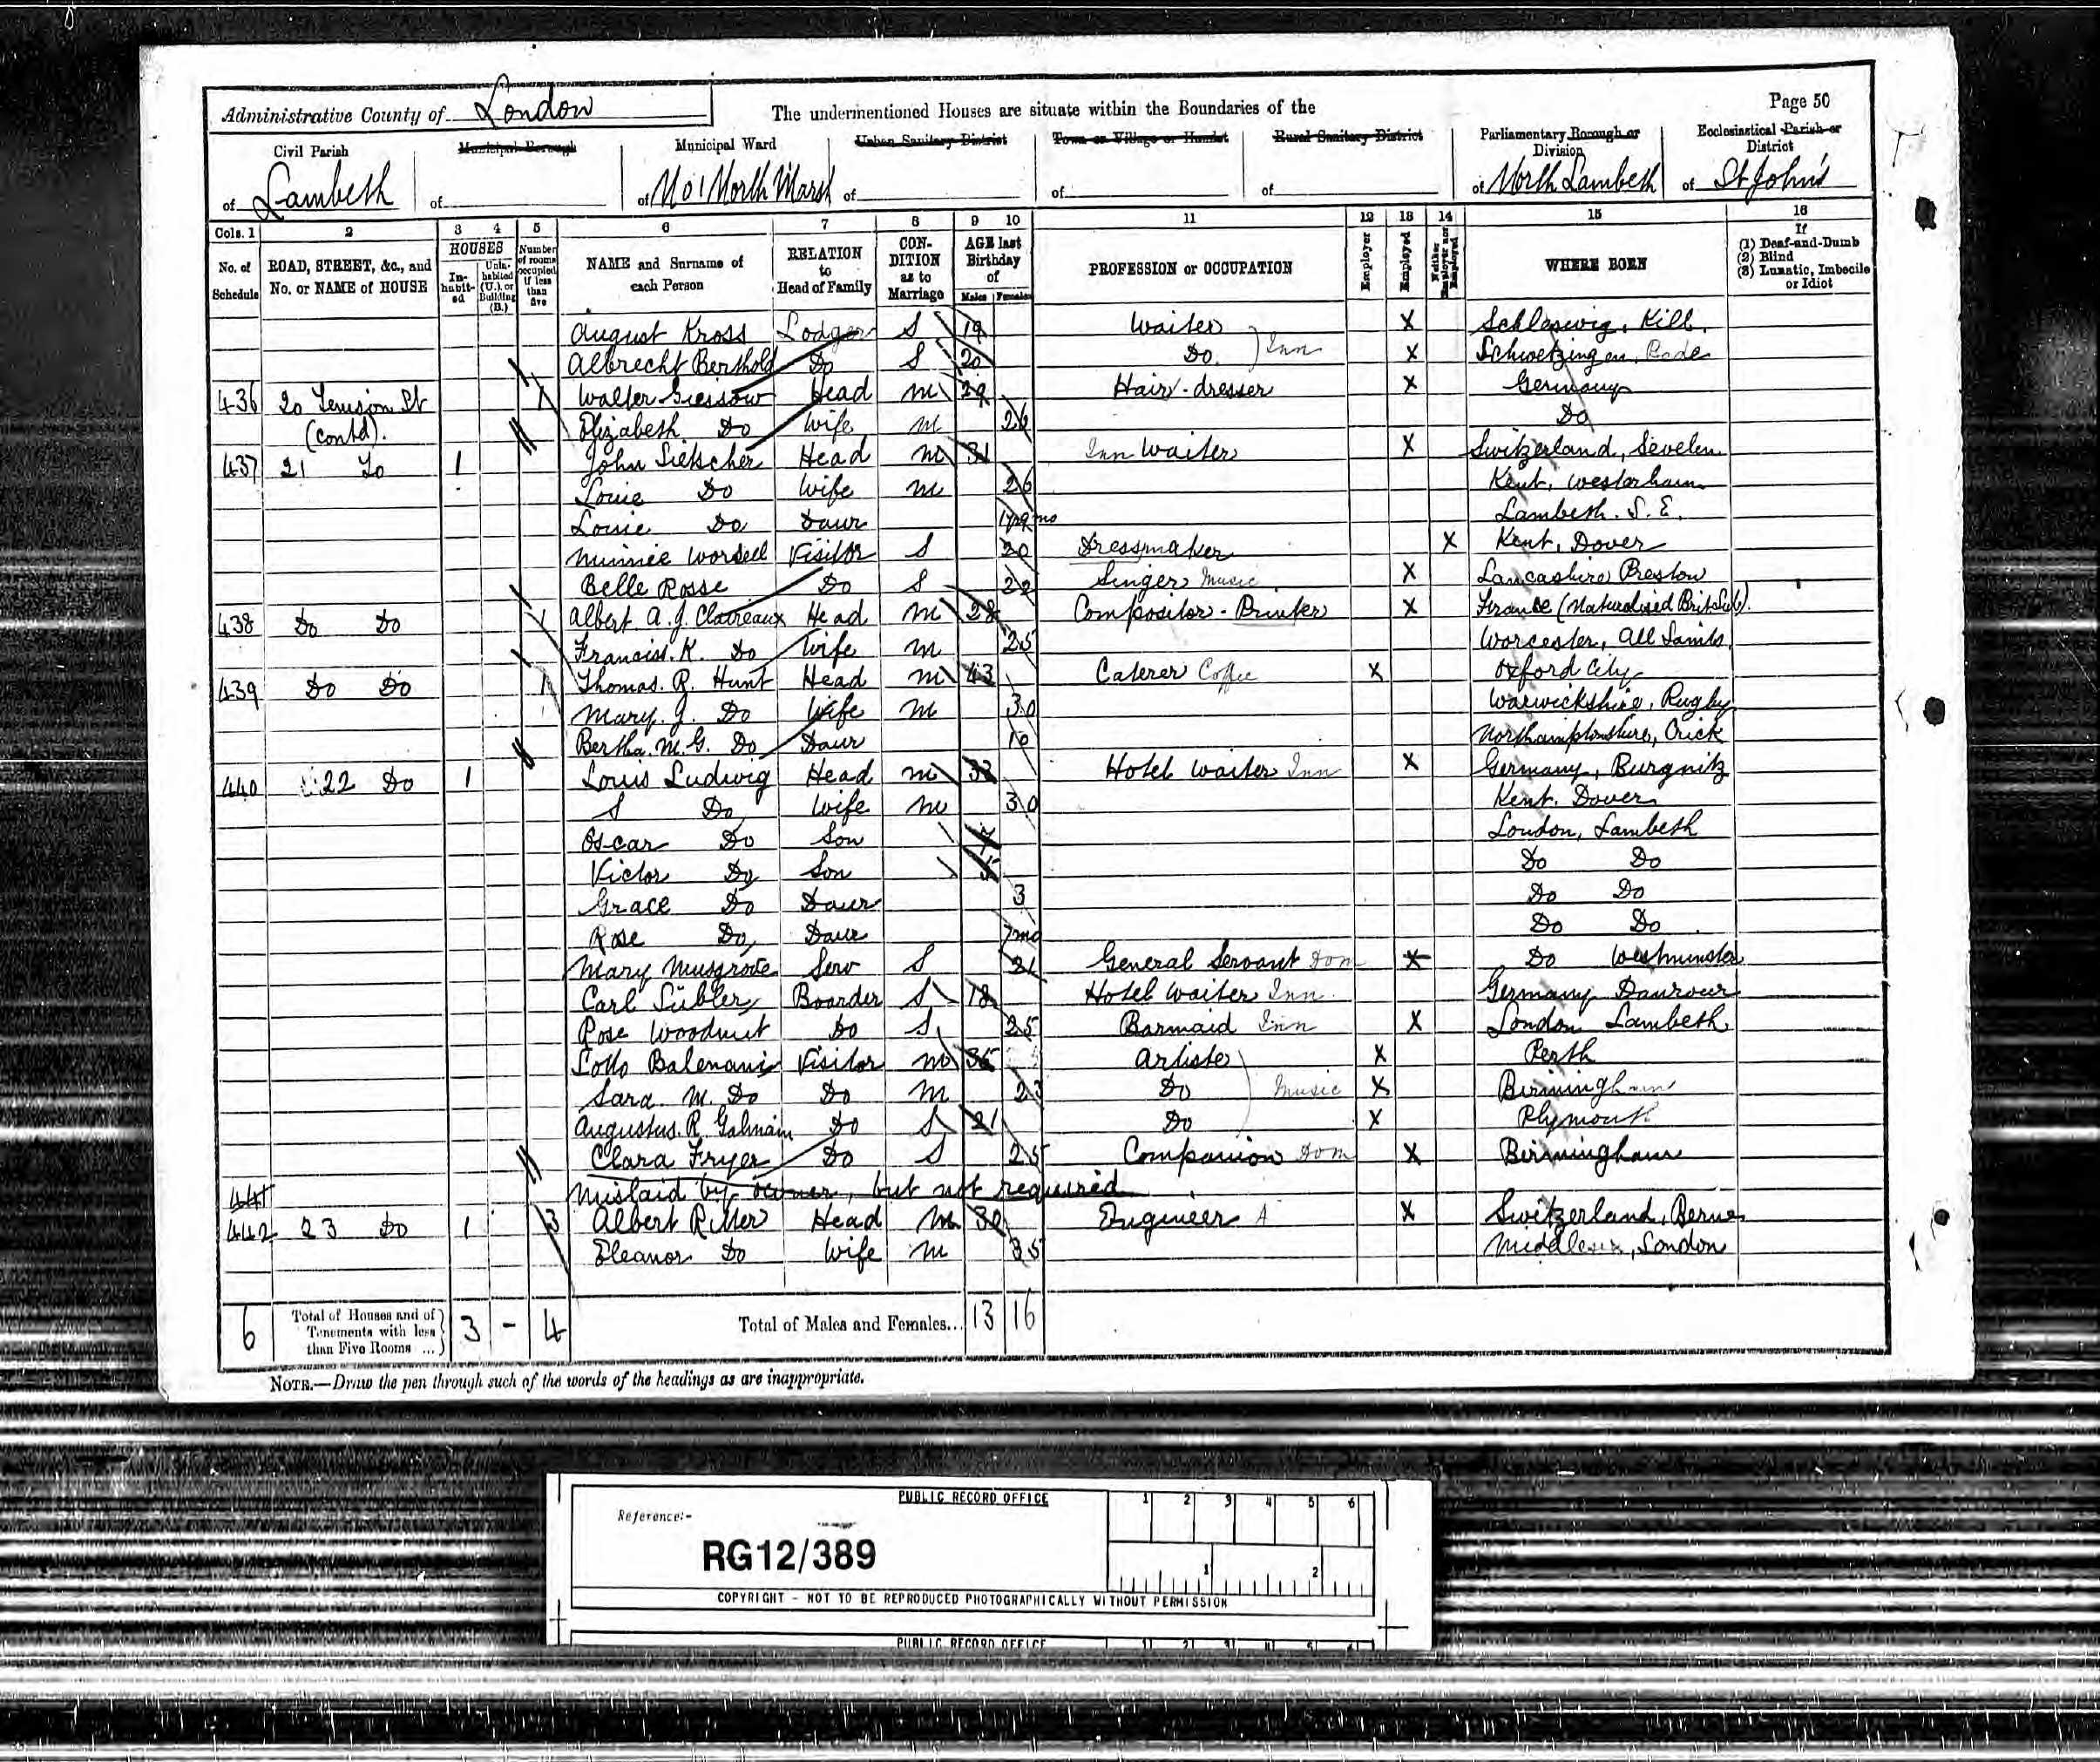 Administrative County of London
The undermentioned Houses are situate within the Boundaries of the
Page 50
Civil Parish
of Lambeth
Municipal Borough
of
Municipal Ward
of No 1 North Marsh
Urban Sanitary District
of
Town or Village or Hamlet
of
Rural Sanitary District
of
Parliamentary Borough or Division
of North Lambeth
Ecclesiastical Parish or District
of St John's
Cols. 1 2 3 4 5 6 7 8 9 10 11 12 13 14 15 16
No. of Schedule
ROAD, STREET, &c., and No. or NAME of HOUSE
HOUSES
In-habit-ed
Unin-habited (U.), or Building (B.)
Number of rooms occupied if less than five
NAME and Surname of each Person
RELATION to Head of Family
CON-DITION as to Marriage
AGE last Birthday of
Males Females
PROFESSION or OCCUPATION
Employer
Employed
Neither Employer nor Employed
WHERE BORN
If
(1) Deaf-and-Dumb
(2) Blind
(3) Lunatic, Imbecile or Idiot
August Kross Lodger S 19 Waiter X Schleswig, Kill.
Albrecht Berthold Do S 20 Do. Inn X Schwetzingen
436 20 Tenison St (contd). 1 Walter Head M 29 Hair-dresser X Germany
Elizabeth Do Wife M 26 Do
437 21 Do 1 John Sietscher Head M 31 Inn Waiter X Switzerland, Sevelen
Louie Do Wife M 26 Kent, Westerham
Louie Do Daur Lambeth. S.E.
Minnie Worsell Visitor S 20 Dressmaker X Kent, Dover
Belle Rosse Do S 22 Singer Music X Lancashire Preston
438 Do Do 1 Albert A. J. Claireaux Head M 28 Compositor - Printer X France (Naturalised Brit Sub).
Francis. K. Do Wife M 25 Worcester, All Saints
439 Do Do 1 Thomas. R. Hunt Head M 43 Caterer Coffee X Oxford City
Mary. J. Do Wife M 30 Warwickshire, Rugby
Bertha. M. G. Do Daur 10 Northamptonshire, Crick
440 22 Do 1 Louis Ludwig Head M 33 Hotel Waiter Inn X Germany, Burgnitz
S Do Wife M 30 Kent. Dover
Oscar Do Son 7 London, Lambeth
Victor Do Son 5 Do Do
Grace Do Daur 3 Do Do
Rose Do Daur 7mo Do Do
Mary Musgrove Serv S 21 General Servant Dom X Do Westminster
Carl Sübler Boarder S 18 Hotel Waiter Inn Germany
Rose Woodnut Do S 25 Barmaid Inn X London Lambeth
Visitor M Artiste X Perth
Sara. M. Do Do M 23 Do Music X Birmingham
Augustus. R. Do S 21 Do X Plymouth
Clara Fryer Do S 25 Companion Dom X Birmingham
441 Mislaid by owner, but not required
442 23 Do 1 3 Albert Ritter Head M 30 Engineer A X Switzerland, Berne
Eleanor Do Wife M 35 Middlesex, London
6 Total of Houses and of Tenements with less than Five Rooms ... 3 - 4 Total of Males and Females... 13 16
NOTE.—Draw the pen through such of the words of the headings as are inappropriate.
PUBLIC RECORD OFFICE
1 2 3 4 5 6
Reference:-
RG12/389
1 2
COPYRIGHT - NOT TO BE REPRODUCED PHOTOGRAPHICALLY WITHOUT PERMISSION
PUBLIC RECORD OFFICE